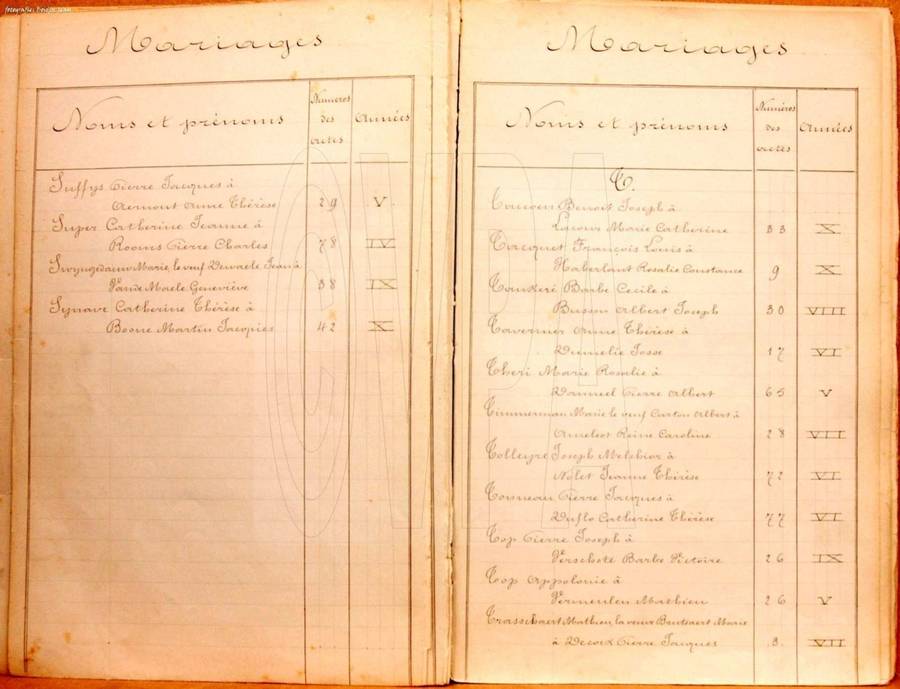 Mariages
Noms et prénoms
Numéros des actes
Années
Suffys Pierre Jacques à
Aernout Anne Thérèse 29 V
Super Catherine Jeanne à
Rooms Pierre Charles 78 IV
Swyngedauw Marie, le veuf Dewaele Jean à
Vande Maele Geneviève 38 IX
Synave Catherine Thérèse à
Boone Martin Jacques 42 X
Mariages
Noms et prénoms
Numéros des actes
Années
T.
Benoit Joseph à
Marie Catherine 33 X
Tacquet François Louis à
Haberlant Rosalie Constance 9 X
Barbe Cecile à
Busson Albert Joseph 30 VIII
Tavernier Anne Thérèse à
Josse 17 VI
Theri Marie Rosalie à
Pierre Albert 65 V
Timmerman Marie le veuf Carton Albert à
Ameloot Reine Caroline 28 VII
Joseph Melchior à
Nolet Jeanne Thérèse 72 VI
Tonneau Pierre Jacques à
Duflo Catherine Thérèse 77 VI
Top Pierre Joseph à
Barbe Victoire 26 IX
Top Appolonie à
Vermeulen Mathieu 26 V
Mathieu, la veuve Marie
à Pierre Jacques 3 VII